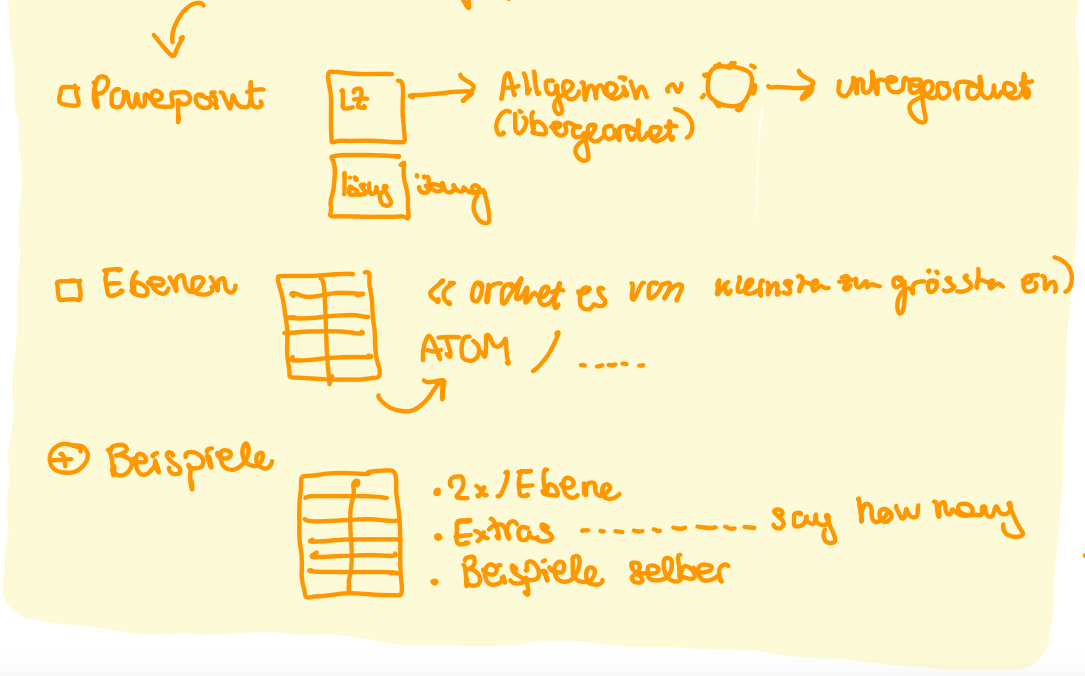 Powerpoint LZ Allgemein ~ untergeordnet
(Übergeordet)
lösug übung
Ebenen << ordnet es von kleinsten zum grössten ein)
ATOM / ......
+ Beispiele
• 2x / Ebene
• Extras --------- say how many
• Beispiele selber